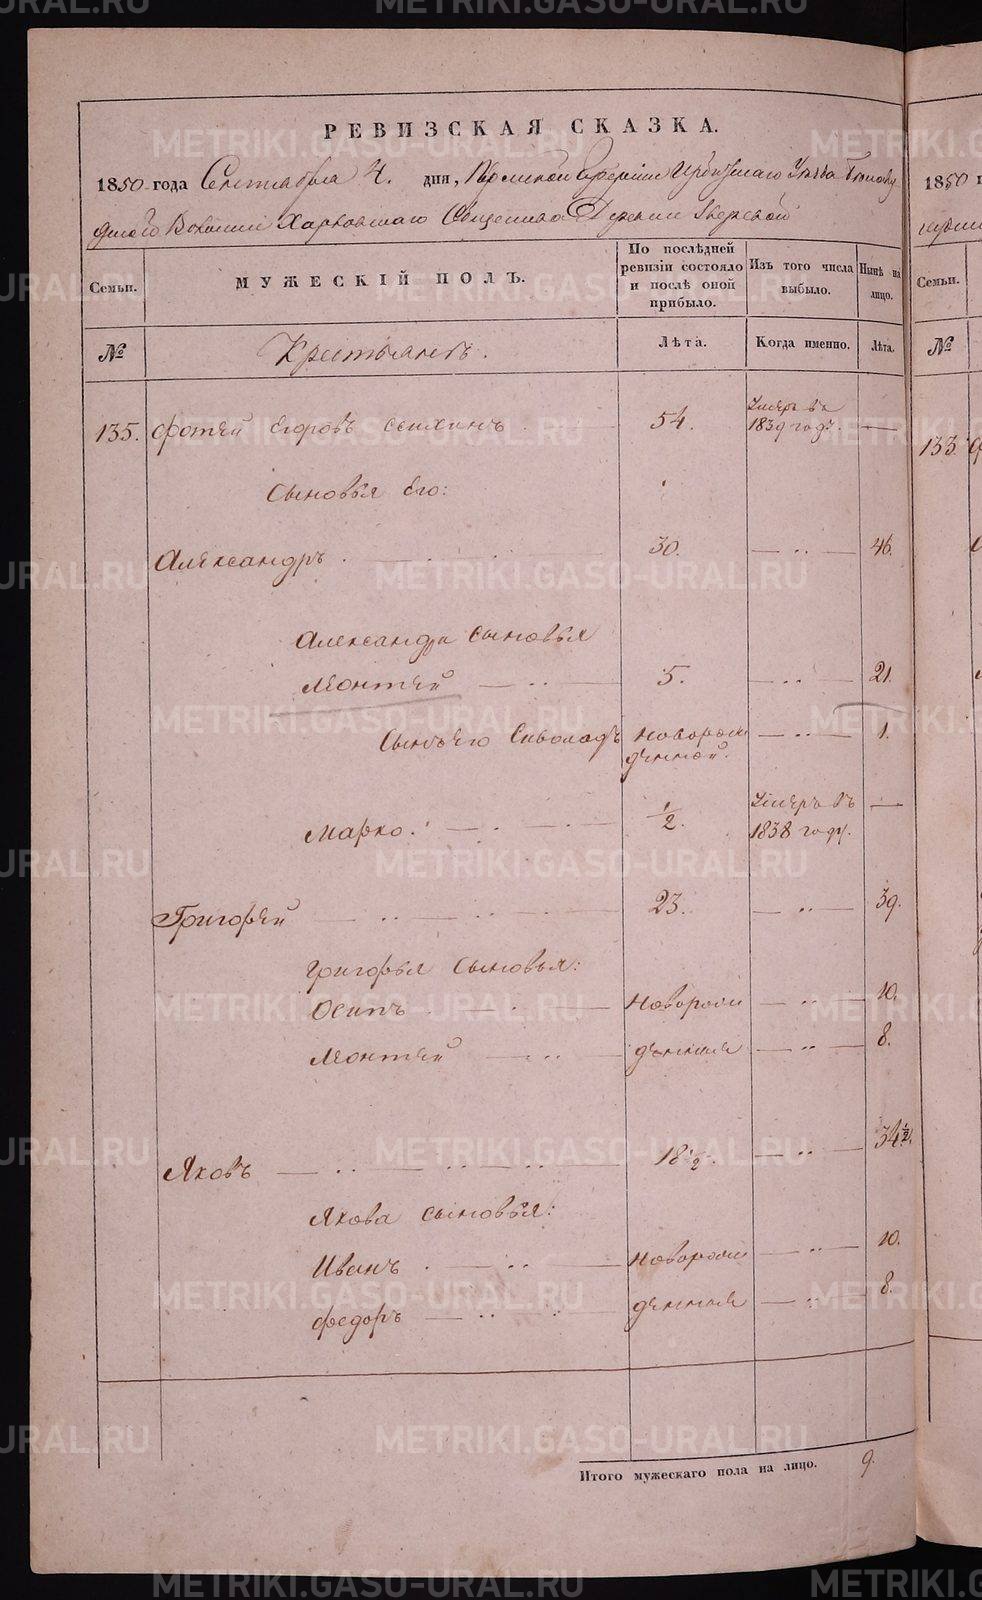 РЕВИЗСКАЯ СКАЗКА.
1850 года Сентября 4. дня, Пермской Губернии Ирбитскаго Уезда
Волости Харловскаго Общества Деревни
Семьи. МУЖЕСКІЙ ПОЛЪ. По послѣдней ревизіи состояло и послѣ оной прибыло. Изъ того числа выбыло. Нынѣ на лицо.
№ Крестьянъ. Лѣта. Когда именно. Лѣта.
135. Фотей Егоровъ 54. Умеръ въ 1839 году. —
Сыновья Его:
Александръ 30. 46.
Александра сыновья
Леонтей 5. 21.
Сынъ его новорожденной. 1.
Марко. 1/2. Умеръ въ 1838 году. —
Григорей 23. 39.
Григорья Сыновья:
Осипъ новорож 10.
Леонтей денныя 8.
Яковъ 18 1/2. 34 1/2.
Якова сыновья:
Иванъ новорож 10.
Федоръ денныя 8.
Итого мужескаго пола на лицо. 9.
1850
Семьи.
№
133.
METRIKI.GASO-URAL.RU